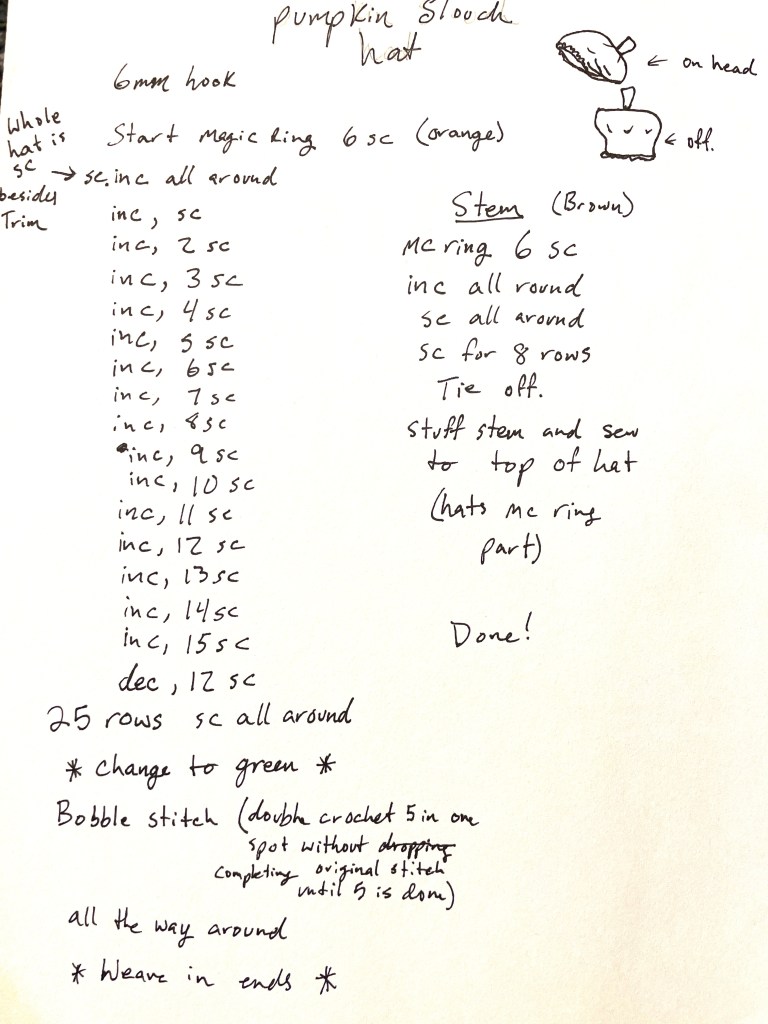 pumpkin Slouch
hat
6mm hook
← on head
← off.
Whole
hat is
sc →
besides
Trim
Start Magic Ring 6 sc (orange)
sc. inc all around
inc, sc
inc, 2 sc
inc, 3 sc
inc, 4 sc
inc, 5 sc
inc, 6 sc
inc, 7 sc
inc, 8 sc
inc, 9 sc
inc, 10 sc
inc, 11 sc
inc, 12 sc
inc, 13 sc
inc, 14 sc
inc, 15 sc
dec, 12 sc
25 rows sc all around
* change to green *
Bobble stitch (double crochet 5 in one
spot without dropping
completing original stitch
until 5 is done)
all the way around
* Weave in ends *
Stem (Brown)
MC ring 6 sc
inc all round
sc all around
sc for 8 rows
Tie off.
stuff stem and sew
to top of hat
(hats MC ring
part)
Done!